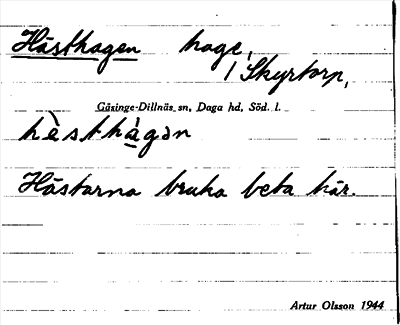 Hästhagen hage,
i Skyrtorp,
Gåsinge-Dillnäs sn, Daga hd, Söd. l.
hèsthàgən
Hästarna bruka beta här.
Artur Olsson 1944